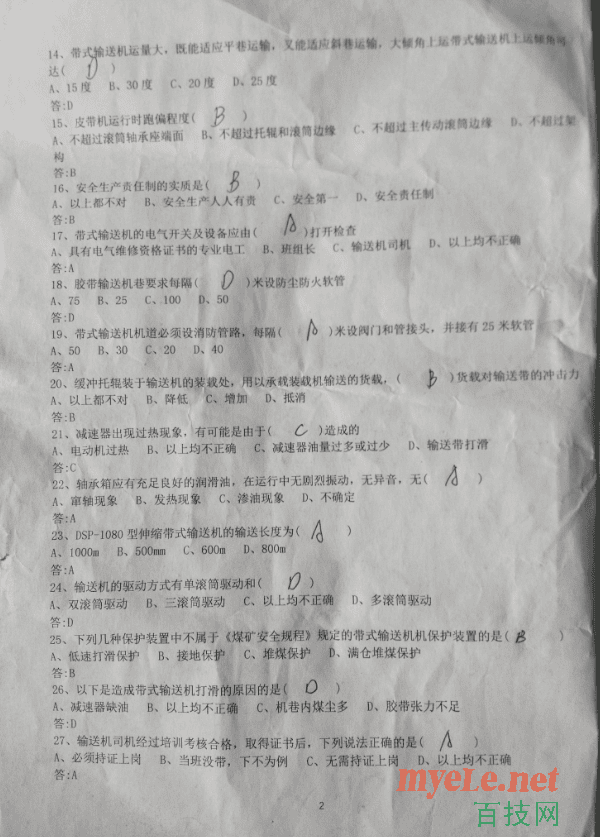 14、带式输送机运量大，既能适应平巷运输，又能适应斜巷运输，大倾角上运带式输送机上运倾角可
达( D )
A、15度 B、30度 C、20度 D、25度
答:D
15、皮带机运行时跑偏程度( B )
A、不超过滚筒轴承座端面 B、不超过托辊和滚筒边缘 C、不超过主传动滚筒边缘 D、不超过架
构
答:B
16、安全生产责任制的实质是( B )
A、以上都不对 B、安全生产人人有责 C、安全第一 D、安全责任制
答:B
17、带式输送机的电气开关及设备应由( A )打开检查
A、具有电气维修资格证书的专业电工 B、班组长 C、输送机司机 D、以上均不正确
答:A
18、胶带输送机巷要求每隔( D )米设防尘防火软管
A、75 B、25 C、100 D、50
答:D
19、带式输送机机道必须设消防管路，每隔( A )米设阀门和管接头，并接有25米软管
A、50 B、30 C、20 D、40
答:A
20、缓冲托辊装于输送机的装载处，用以承载装载机输送的货载，( B )货载对输送带的冲击力
A、以上都不对 B、降低 C、增加 D、抵消
答:B
21、减速器出现过热现象，有可能是由于( C )造成的
A、电动机过热 B、以上均不正确 C、减速器油量过多或过少 D、输送带打滑
答:C
22、轴承箱应有充足良好的润滑油，在运行中无剧烈振动，无异音，无( A )
A、窜轴现象 B、发热现象 C、渗油现象 D、不确定
答:A
23、DSP-1080型伸缩带式输送机的输送长度为( A )
A、1000m B、500mm C、600m D、800m
答:A
24、输送机的驱动方式有单滚筒驱动和( D )
A、双滚筒驱动 B、三滚筒驱动 C、以上均不正确 D、多滚筒驱动
答:D
25、下列几种保护装置中不属于《煤矿安全规程》规定的带式输送机机保护装置的是( B )
A、低速打滑保护 B、接地保护 C、堆煤保护 D、满仓堆煤保护
答:B
26、以下是造成带式输送机打滑的原因的是( D )
A、减速器缺油 B、以上均不正确 C、机巷内煤尘多 D、胶带张力不足
答:D
27、输送机司机经过培训考核合格，取得证书后，下列说法正确的是( A )
A、必须持证上岗 B、当班没带，下不为例 C、无需持证上岗 D、以上均不正确
答:A
myele.net
百技网
2